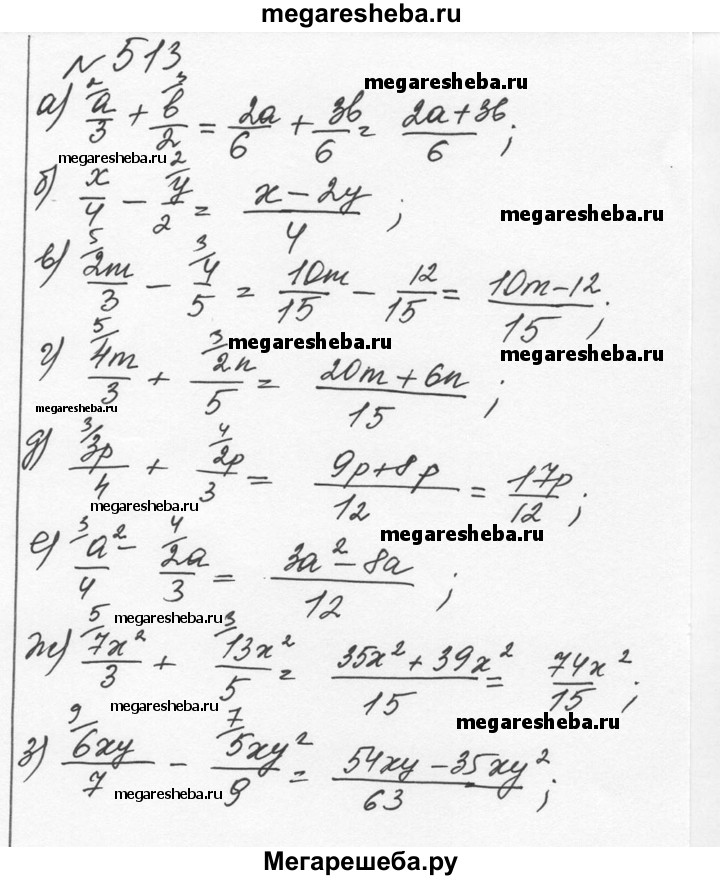 megaresheba.ru
№ 513
megaresheba.ru
а) a/3 + b/2 = 2a/6 + 3b/6 = (2a+3b)/6;
megaresheba.ru
б) x/4 - y/2 = (x-2y)/4;
megaresheba.ru
в) 2m/3 - 4/5 = 10m/15 - 12/15 = (10m-12)/15;
megaresheba.ru
megaresheba.ru
г) 4m/3 + 2n/5 = (20m+6n)/15;
megaresheba.ru
д) 3p/4 + 2p/3 = (9p+8p)/12 = 17p/12;
megaresheba.ru
megaresheba.ru
е) a²/4 - 2a/3 = (3a²-8a)/12;
megaresheba.ru
ж) 7x²/3 + 13x²/5 = (35x²+39x²)/15 = 74x²/15;
megaresheba.ru
megaresheba.ru
з) 6xy/7 - 5xy²/9 = (54xy-35xy²)/63;
megaresheba.ru
Мегарешеба.ру